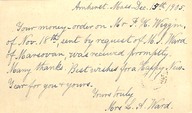 Amherst Mass Dec. 13th, 1905.
Your money-order on Mr. F. H. Wiggin,
of Nov. 18th, sent by request of M. J. Ward
of Marsovan, was received promptly.
Many thanks. Best wishes for a Happy New
Year for you & yours.
Yours truly,
Mrs. L. A. Ward.